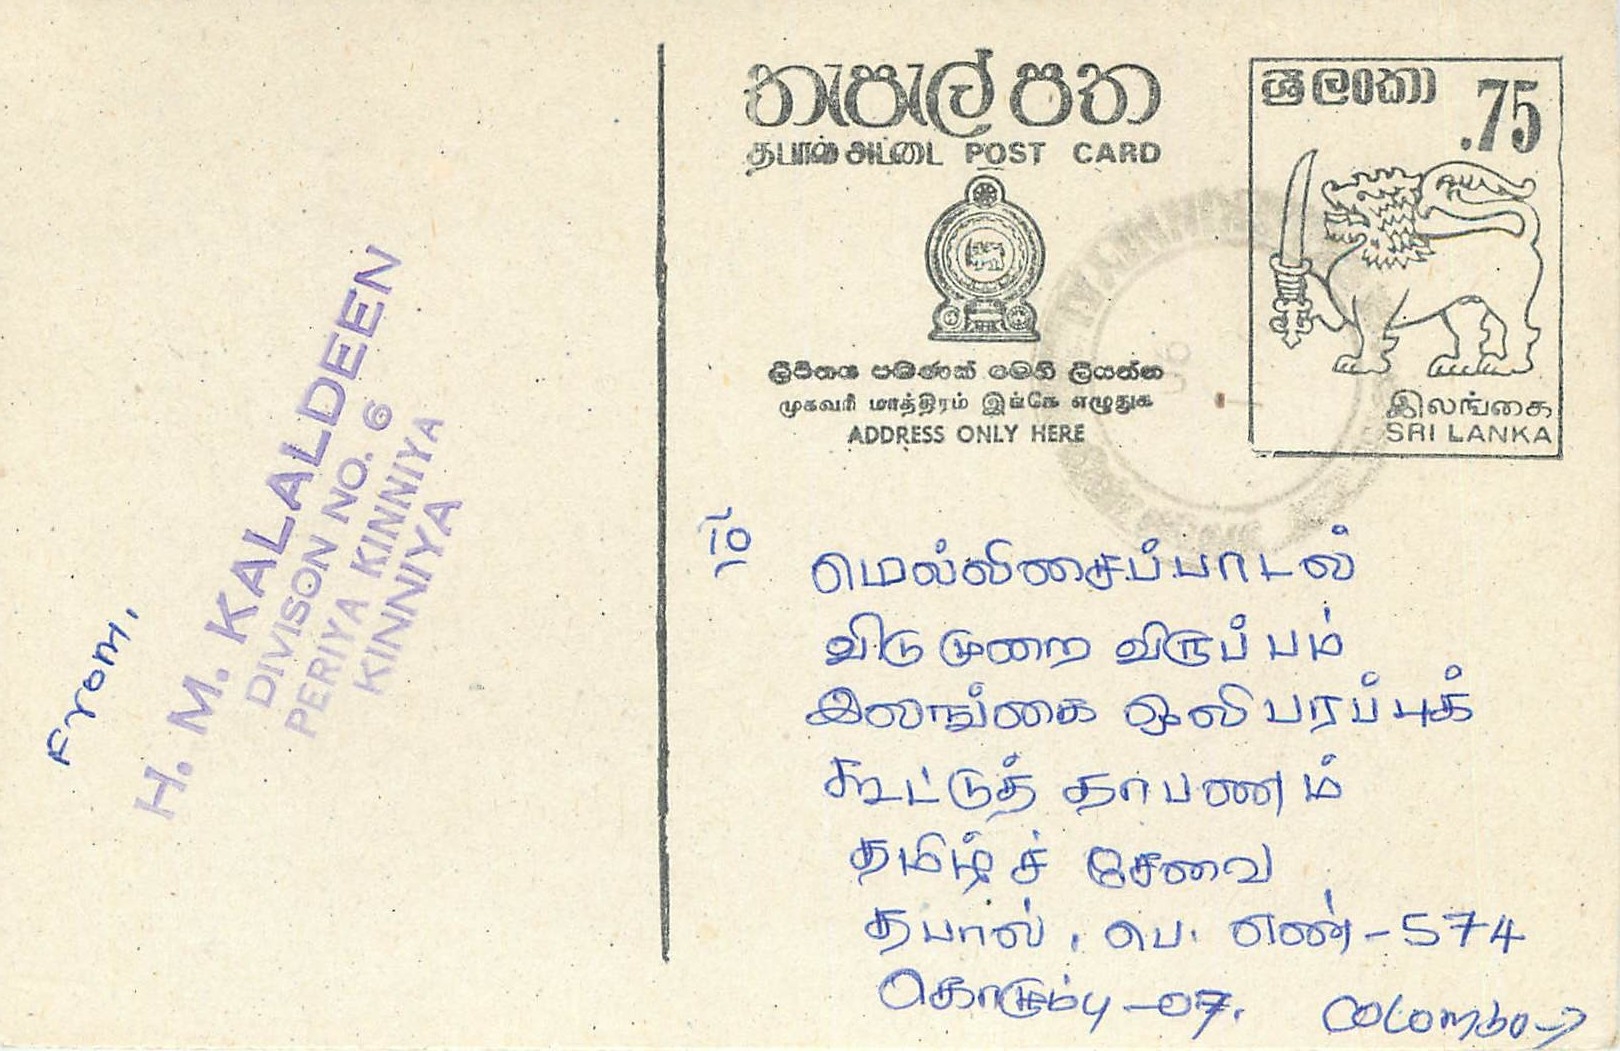 From,
H. M. KALALDEEN
DIVISON NO. 6
PERIYA KINNIYA
KINNIYA
තැපැල් පත
தபால் அட்டை POST CARD
ලිපිනය පමණක් මෙහි ලියන්න
முகவரி மாத்திரம் இங்கே எழுதுக
ADDRESS ONLY HERE
ශ්‍රී ලංකා .75
இலங்கை
SRI LANKA
To
மெல்லிசைப்பாடல்
விடுமுறை விருப்பம்
இலங்கை ஒலிபரப்புக்
கூட்டுத் தாபணம்
தமிழ்ச் சேவை
தபால். பெ. எண் - 574
கொழும்பு - 07. Colombo - 7